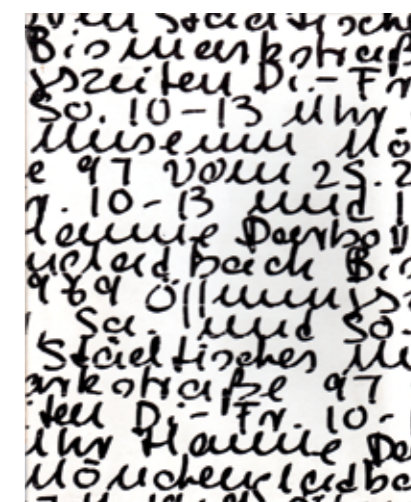 m Städtisch
Bismarkstraß
gszeiten Di.-Fr
So. 10-13 Uhr
Museum Mö
e 97 vom 25.2
r. 10-13 und 1
Hanne Darbov
ncleadbach Bis
969 Öffnungsz
, Sa. und So.
Städtisches Mu
arkstraße 97
iten Di.-Fr. 10-
Uhr Hanne Da
Mönchengladba